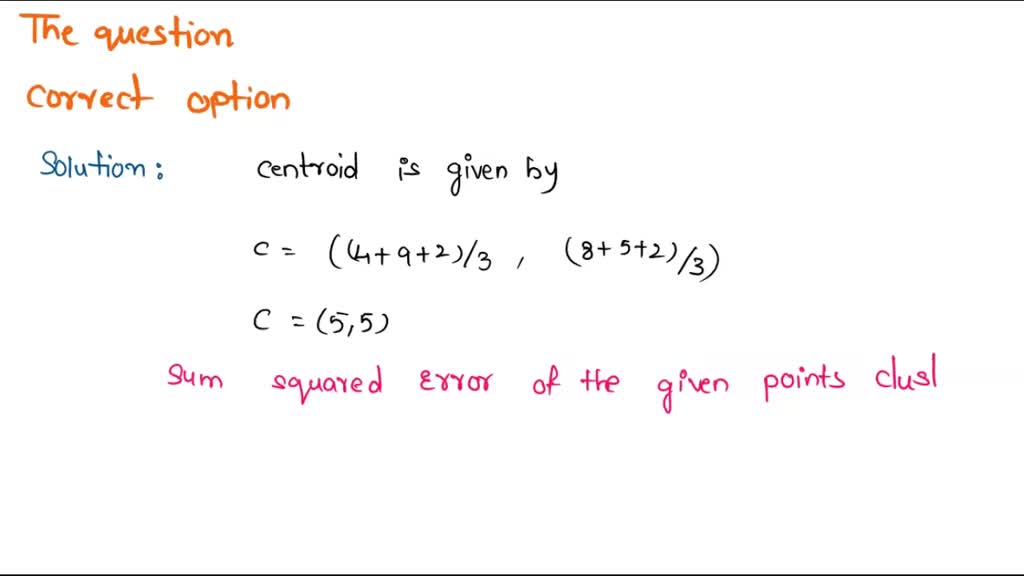 The question
correct option
Solution: centroid is given by
C = ((4+9+2)/3 , (8+5+2)/3)
C = (5,5)
Sum squared Error of the given points clust